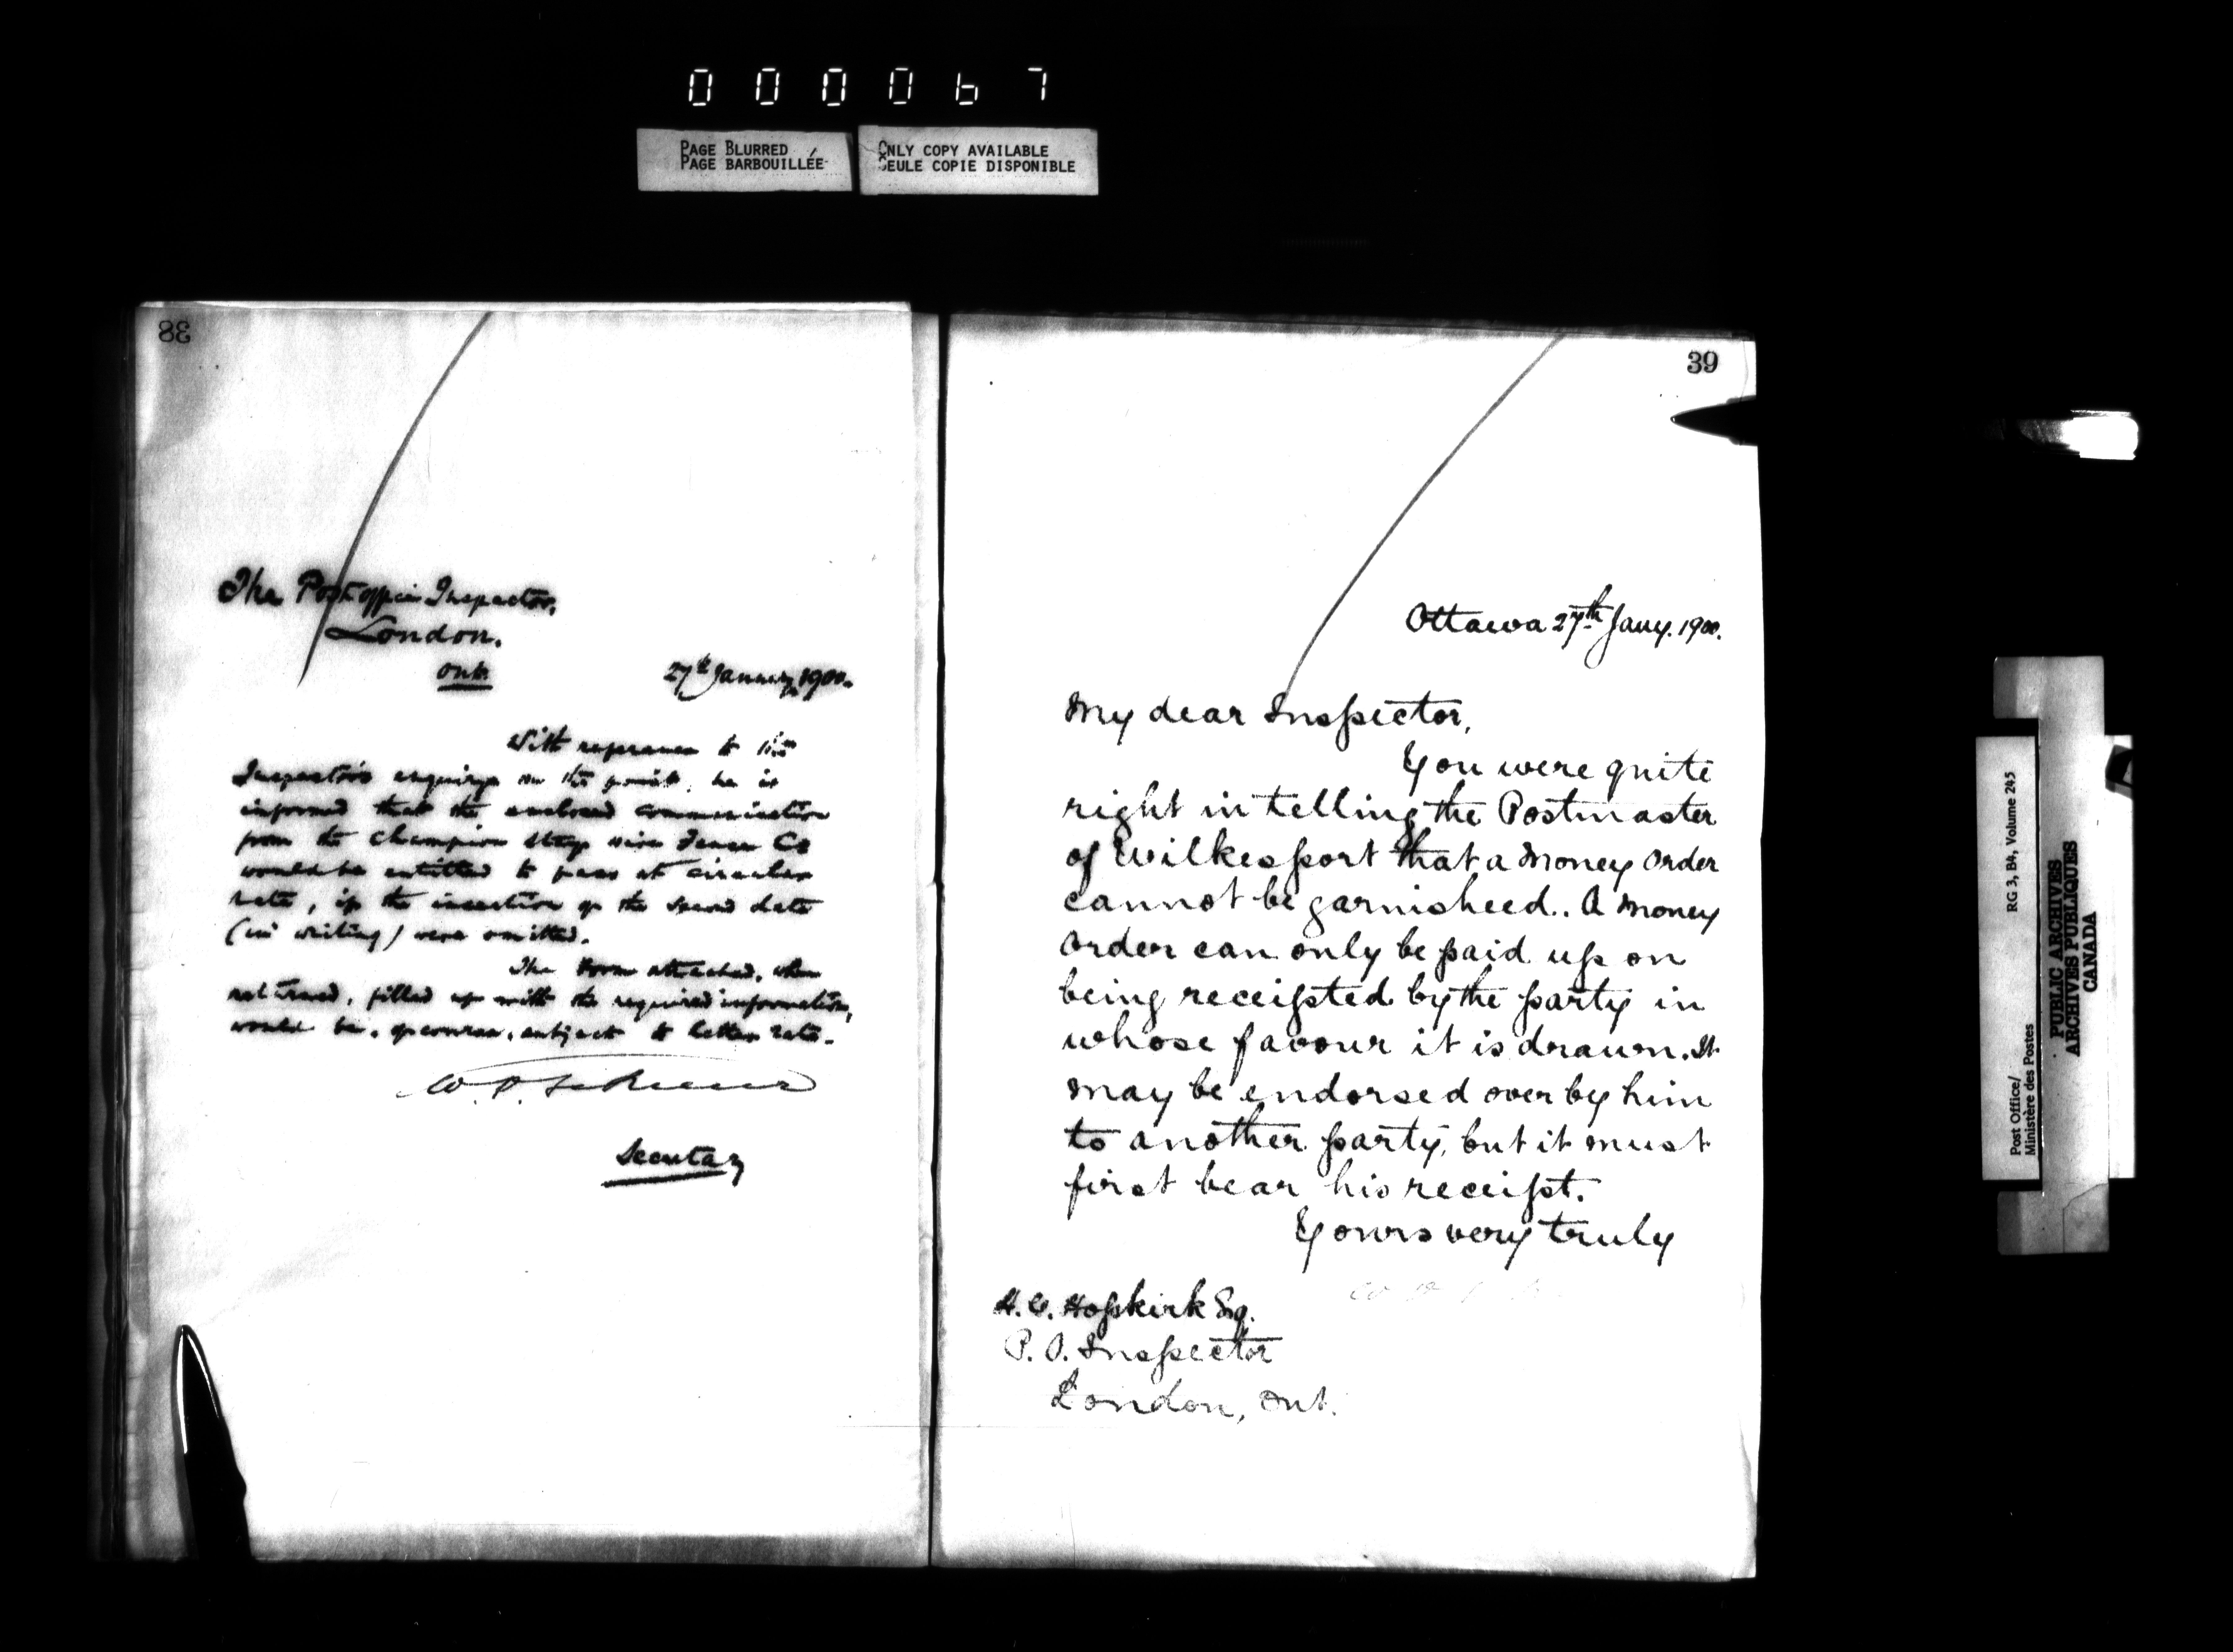 000067
PAGE BLURRED
PAGE BARBOUILLÉE
ONLY COPY AVAILABLE
SEULE COPIE DISPONIBLE
38
The Post office Inspector,
London.
Ont.
27th January 1900.
With reference to the
Inspector's enquiry on the point, he is
informed that the enclosed communication
from the Champion Stay Wire Fence Co
would be entitled to pass at circular
rate, if the insertion of the second date
(in writing) were omitted.
The Form attached, when
returned, filled up with the required information,
would be, of course, subject to letter rate.
Secretary
39
Ottawa 27th Jany. 1900.
My dear Inspector,
You were quite
right in telling the Postmaster
of Wilkesport that a Money Order
cannot be garnisheed.. A Money
Order can only be paid up on
being receipted by the party in
whose favour it is drawn. It
may be endorsed over by him
to another party, but it must
first bear his receipt.
Yours very truly
Hopkirk Esq.
P. O. Inspector
London, Ont.
Post Office/
Ministère des Postes
RG 3, B4, Volume 245
PUBLIC ARCHIVES
ARCHIVES PUBLIQUES
CANADA